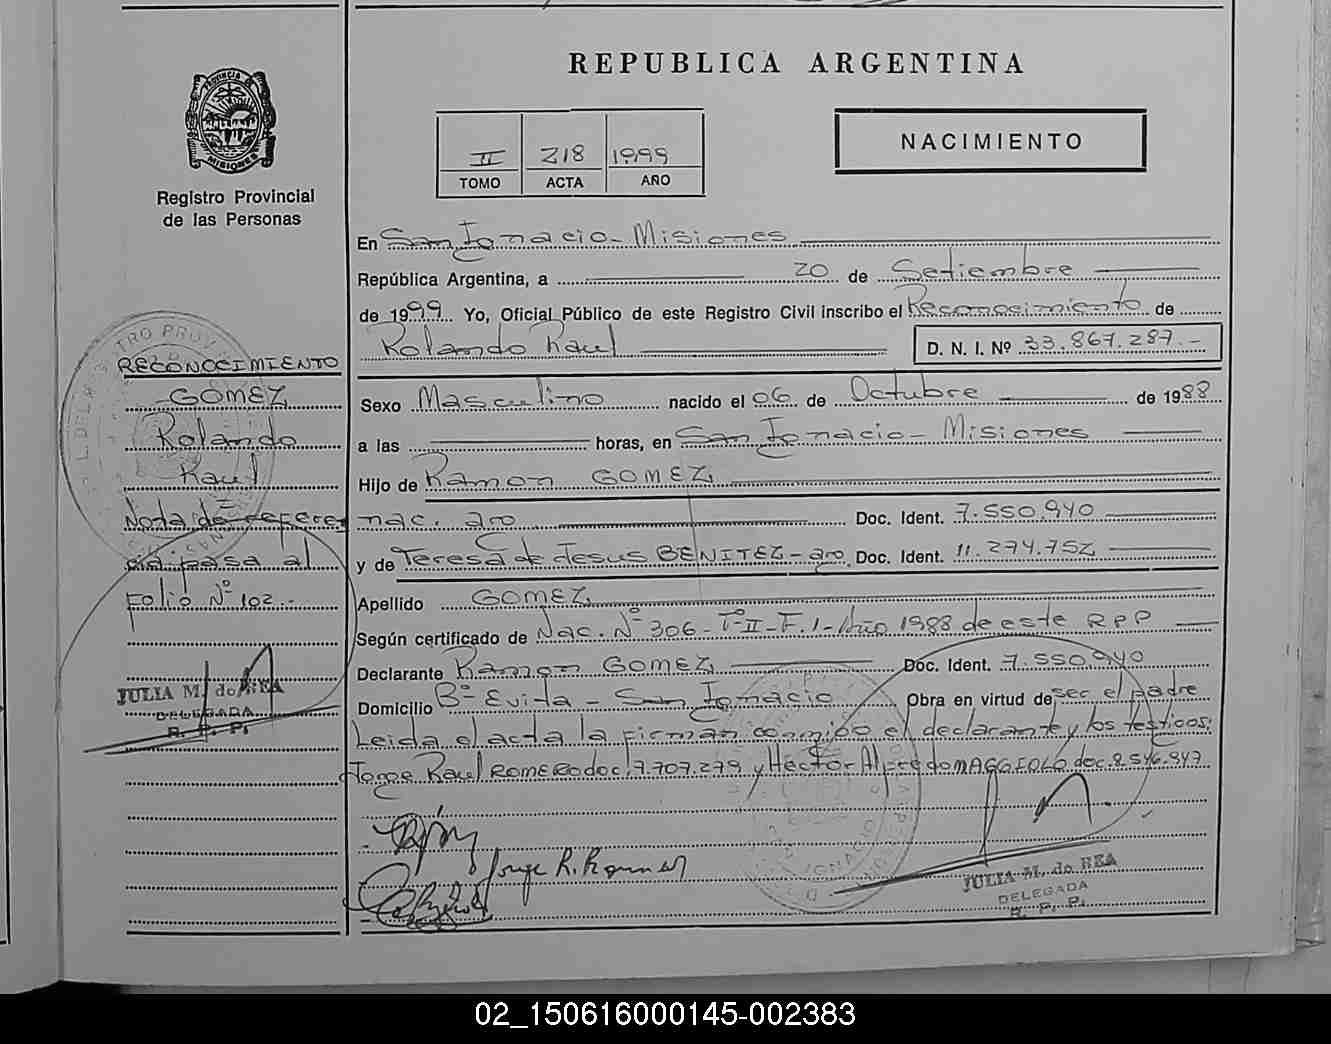 REPUBLICA ARGENTINA
PROVINCIA
MISIONES
Registro Provincial
de las Personas
II 218 1999
TOMO ACTA AÑO
NACIMIENTO
En San Ignacio - Misiones
República Argentina, a 20 de Setiembre
de 1999 Yo, Oficial Público de este Registro Civil inscribo el Reconocimiento de
Rolando Raul D. N. I. Nº 33.867.287.-
Sexo Masculino nacido el 06 de Octubre de 1988
a las horas, en San Ignacio - Misiones
Hijo de Ramon GOMEZ
nac. arg Doc. Ident. 7.550.940
y de Teresa de Jesus BENITEZ - arg. Doc. Ident. 11.274.752
Apellido GOMEZ
Según certificado de Nac. Nº 306 - Tº II - F. 1 - Año 1988 de este RPP
Declarante Ramon GOMEZ Doc. Ident. 7.550.940
Domicilio Bº Evita - San Ignacio Obra en virtud de ser el padre
Leida el acta la firman conmigo el declarante y los testigos:
Jorge Raul ROMERO doc. 7.707.279 y Hector Alfredo MAGGIOLO doc. 8.546.847
Jorge R. Romero
JULIA M. de REA
DELEGADA
R. P. P.
RECONOCIMIENTO
GOMEZ
Rolando
Raul
Nota de referen
cia pasa al
Folio Nº 102.-
JULIA M. de REA
DELEGADA
R. P. P.
02_150616000145-002383